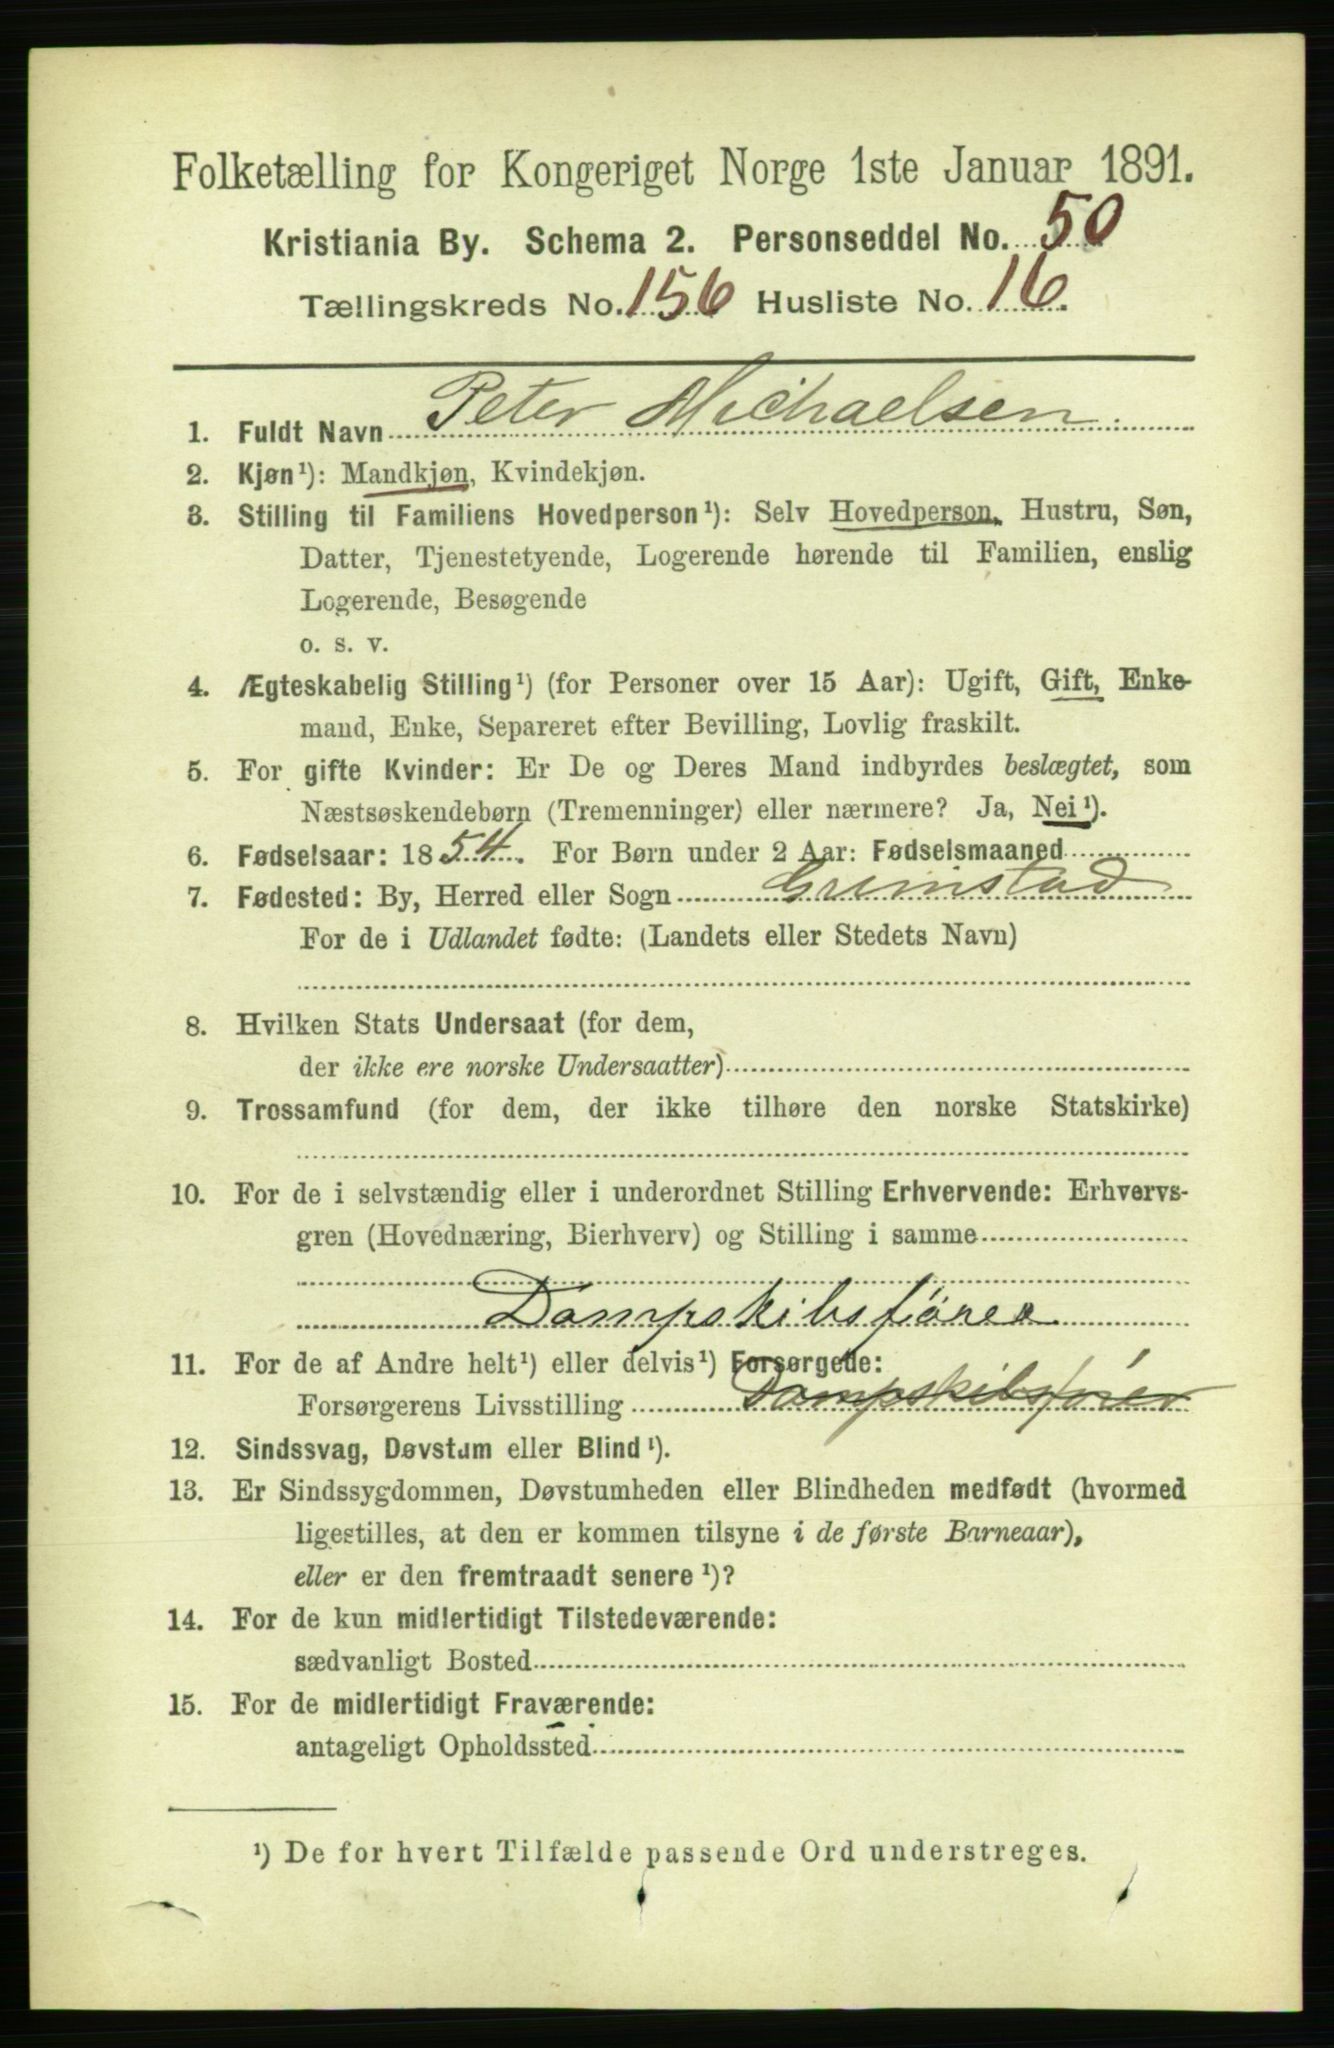 Folketælling for Kongeriget Norge 1ste Januar 1891.
Kristiania By. Schema 2. Personseddel No. 50
Tællingskreds No. 156 Husliste No. 16.
1. Fuldt Navn Peter Michaelsen.
2. Kjøn¹): Mandkjøn, Kvindekjøn.
3. Stilling til Familiens Hovedperson¹): Selv Hovedperson, Hustru, Søn,
Datter, Tjenestetyende, Logerende hørende til Familien, enslig
Logerende, Besøgende
o. s. v.
4. Ægteskabelig Stilling¹) (for Personer over 15 Aar): Ugift, Gift, Enke-
mand, Enke, Separeret efter Bevilling, Lovlig fraskilt.
5. For gifte Kvinder: Er De og Deres Mand indbyrdes beslægtet, som
Næstsøskendebørn (Tremenninger) eller nærmere? Ja, Nei¹).
6. Fødselsaar: 1854. For Børn under 2 Aar: Fødselsmaaned
7. Fødested: By, Herred eller Sogn Grimstad
For de i Udlandet fødte: (Landets eller Stedets Navn)
8. Hvilken Stats Undersaat (for dem,
der ikke ere norske Undersaatter)
9. Trossamfund (for dem, der ikke tilhøre den norske Statskirke)
10. For de i selvstændig eller i underordnet Stilling Erhvervende: Erhvervs-
gren (Hovednæring, Bierhverv) og Stilling i samme
Dampskibsfører
11. For de af Andre helt¹) eller delvis¹) Forsørgede:
Forsørgerens Livsstilling Dampskibsfører
12. Sindssvag, Døvstum eller Blind¹).
13. Er Sindssygdommen, Døvstumheden eller Blindheden medfødt (hvormed
ligestilles, at den er kommen tilsyne i de første Barneaar),
eller er den fremtraadt senere¹)?
14. For de kun midlertidigt Tilstedeværende:
sædvanligt Bosted
15. For de midlertidigt Fraværende:
antageligt Opholdssted
¹) De for hvert Tilfælde passende Ord understreges.